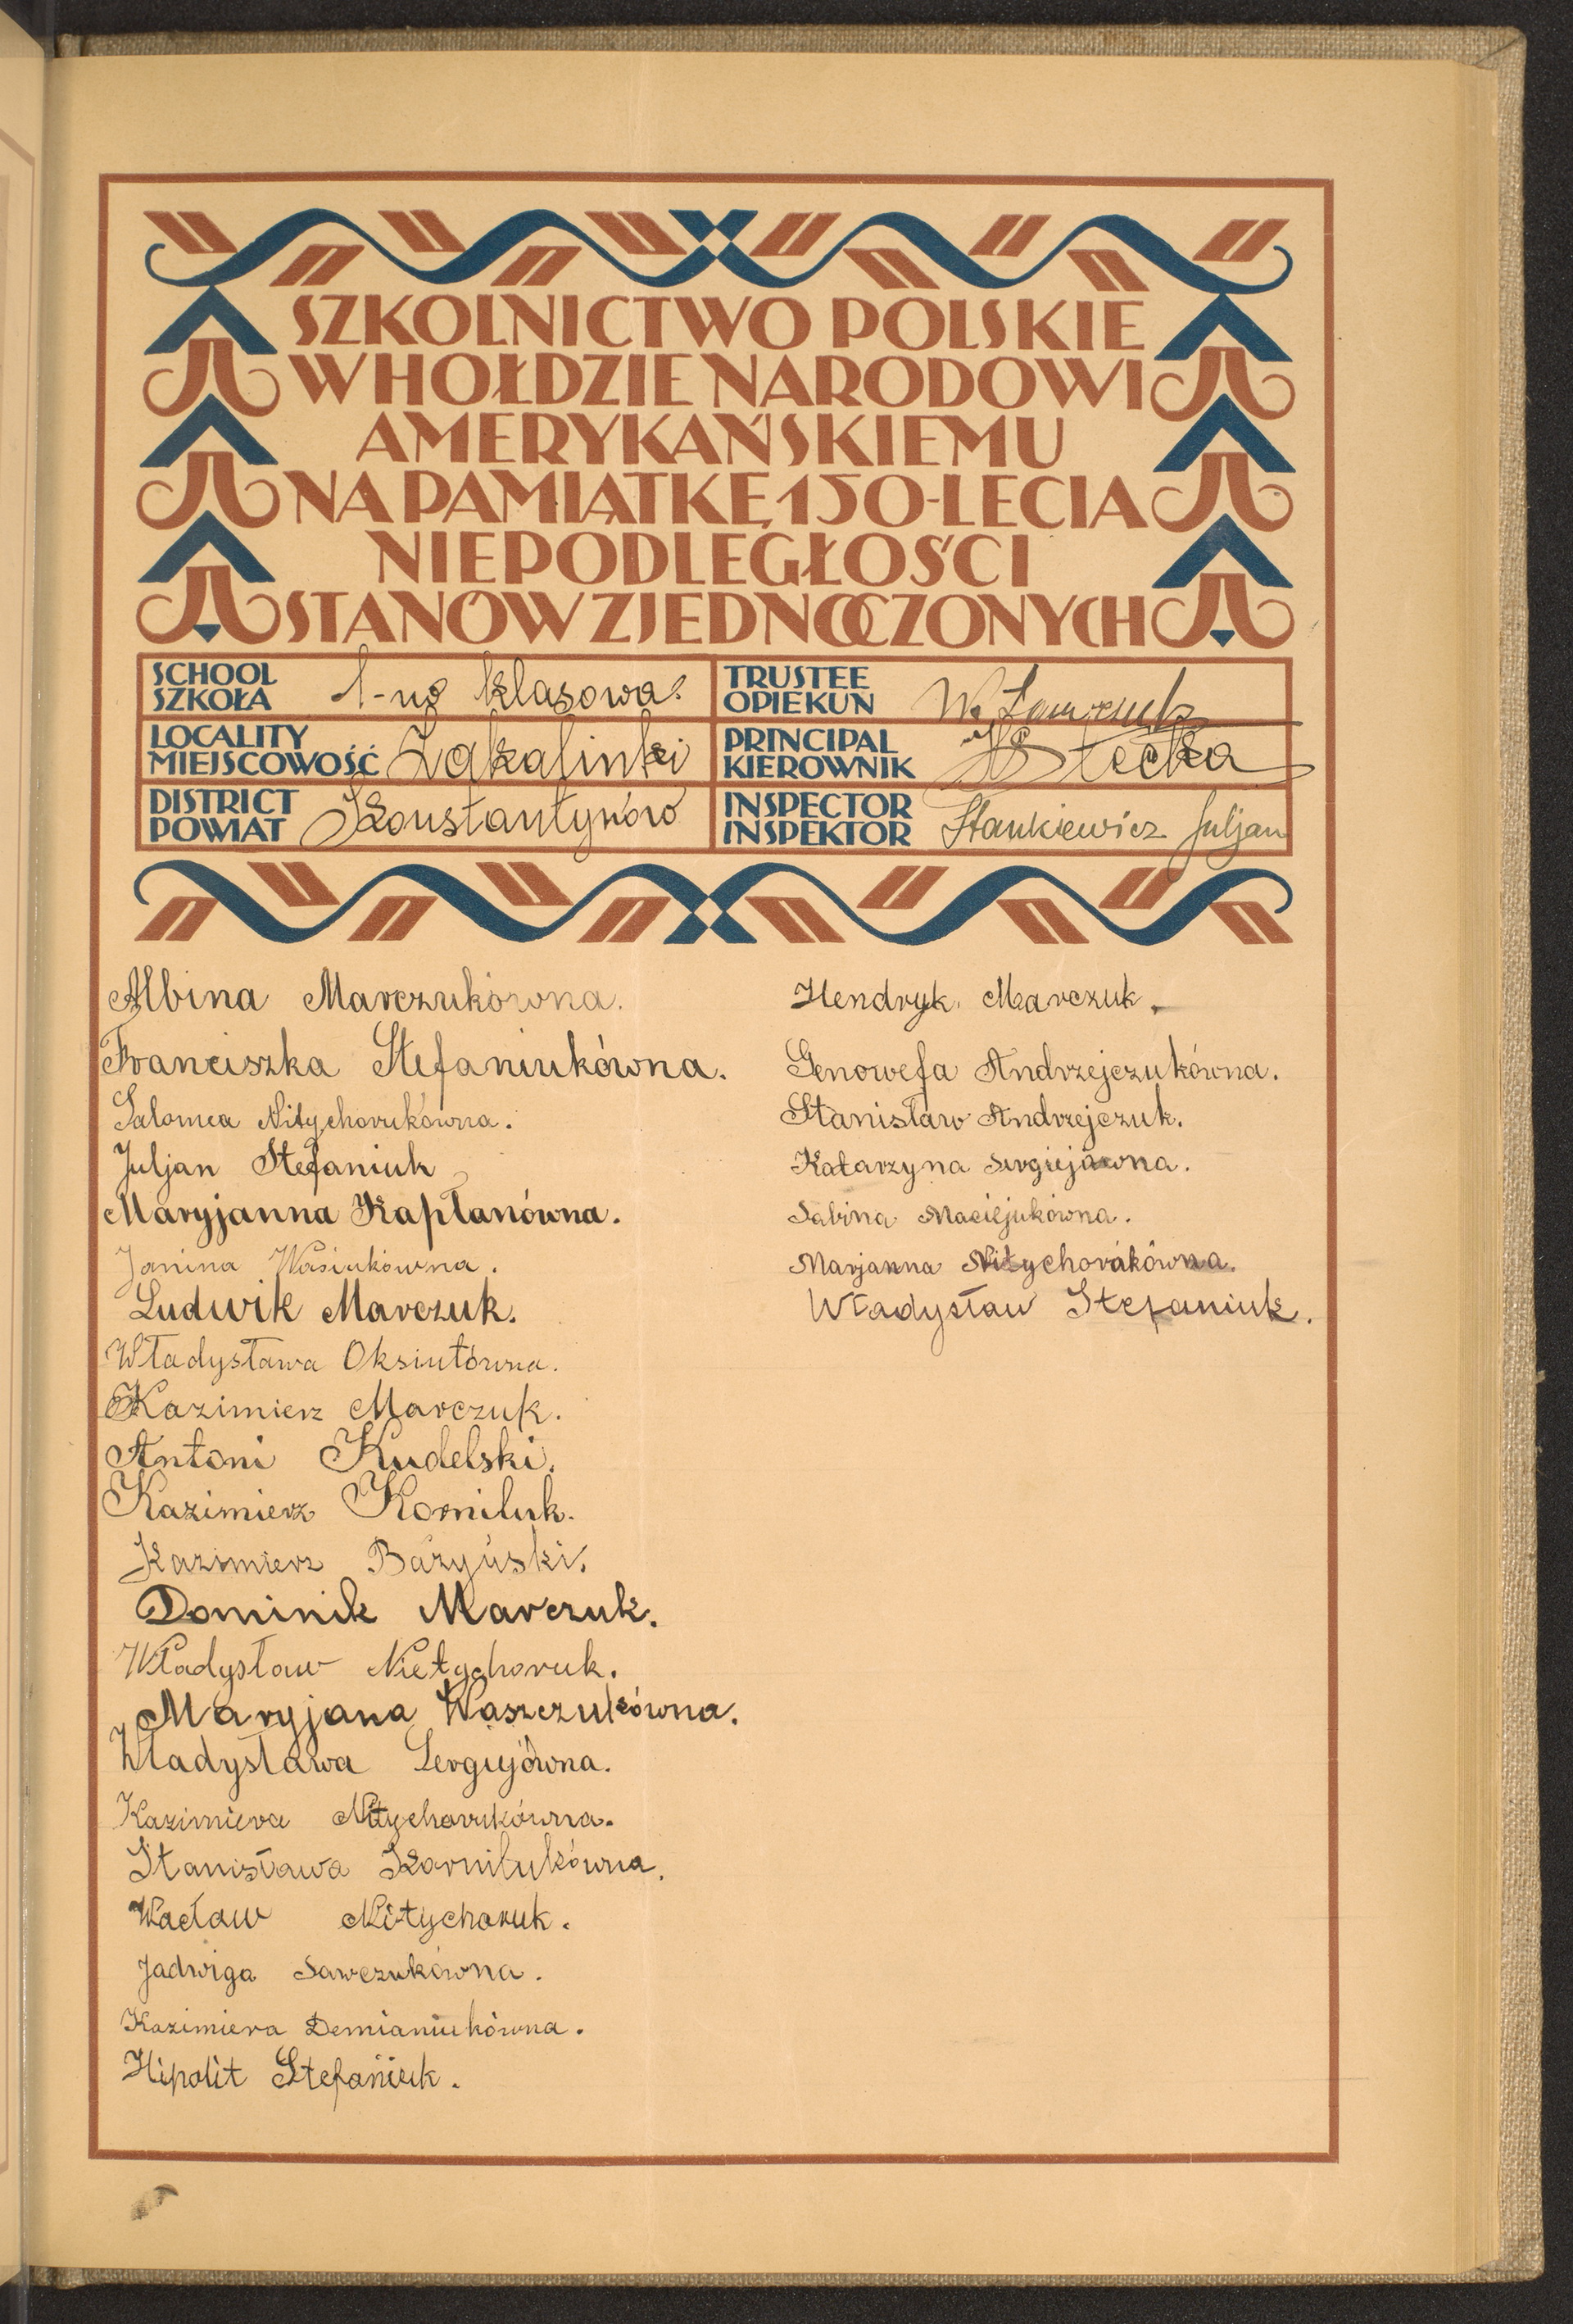 SZKOLNICTWO POLSKIE
W HOŁDZIE NARODOWI
AMERYKAŃSKIEMU
NA PAMIĄTKĘ 150-LECIA
NIEPODLEGŁOŚCI
STANÓW ZJEDNOCZONYCH
SCHOOL
SZKOŁA
1-no klasowa
TRUSTEE
OPIEKUN
W.
LOCALITY
MIEJSCOWOŚĆ
Zakalinki
PRINCIPAL
KIEROWNIK
Stecka
DISTRICT
POWIAT
Konstantynów
INSPECTOR
INSPEKTOR
Stankiewicz Juljan
Albina Marczukówna.
Franciszka Stefaniukówna.
Salomea Nitychorukówna.
Juljan Stefaniuk
Maryjanna Kapłanówna.
Janina Wasiukówna.
Ludwik Marczuk.
Władysława Oksiutówna.
Kazimierz Marczuk.
Antoni Kudelski.
Kazimierz Korniluk.
Kazimierz Bażyński.
Dominik Marczuk.
Władysław Nietychoruk.
Maryjana Waszczukówna.
Władysława Sergiejówna.
Kazimiera Nitychorukówna.
Stanisława Kornilukówna.
Wacław Nitychoruk.
Jadwiga Sawczukówna.
Kazimiera Demianiukówna.
Hipolit Stefaniuk.
Hendryk Marczuk.
Genowefa Andrzejczukówna.
Stanisław Andrzejczuk.
Katarzyna Sergiejówna.
Sabina Maciejukówna.
Marjanna Nitychorukówna.
Władysław Stefaniuk.